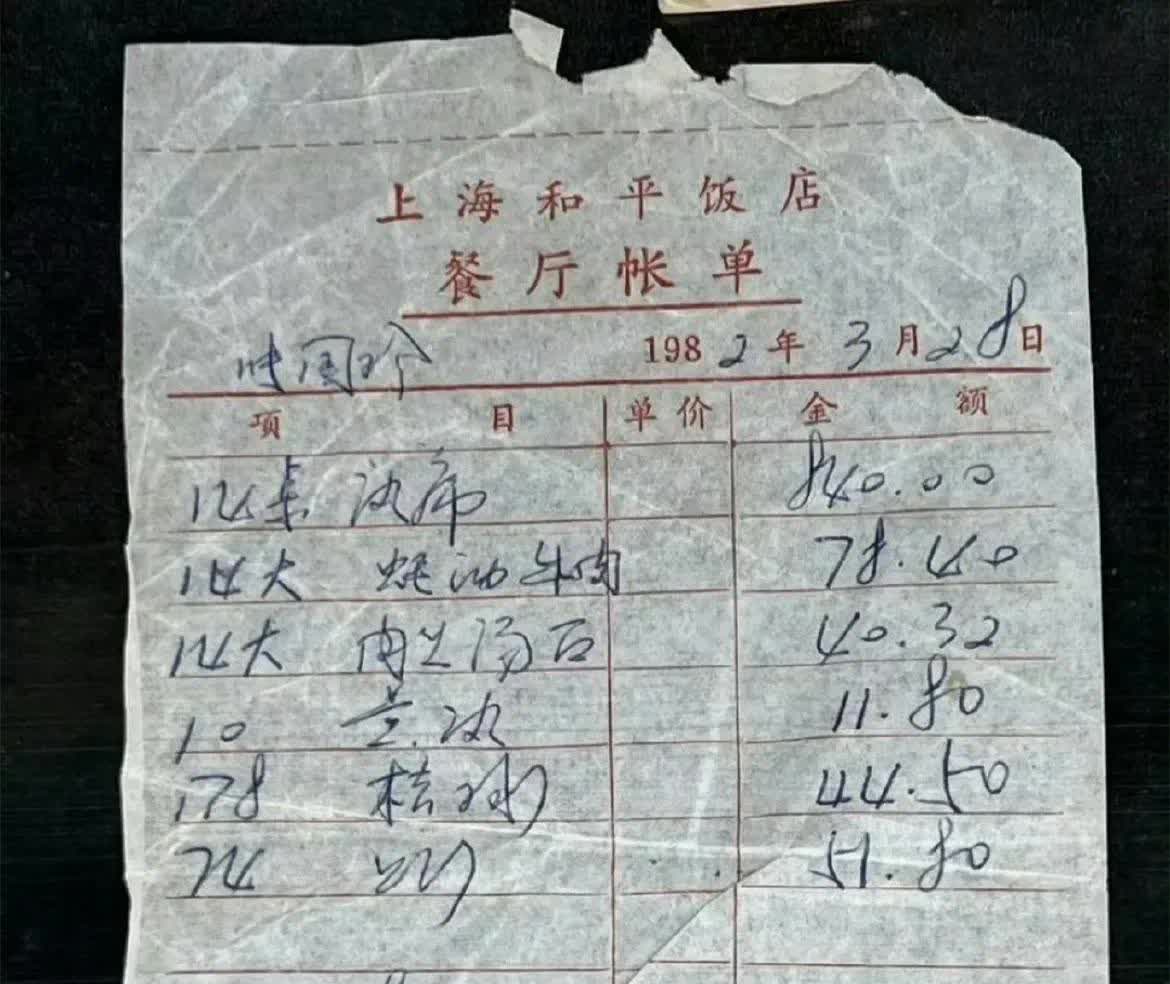 上海和平饭店
餐厅帐单
叶国珍 1982年3月28日
项目 单价 金额
14桌 酒席 840.00
14大 蚝油牛肉 78.40
14大 汤 40.32
10 11.80
178 桔水 44.50
74 51.80